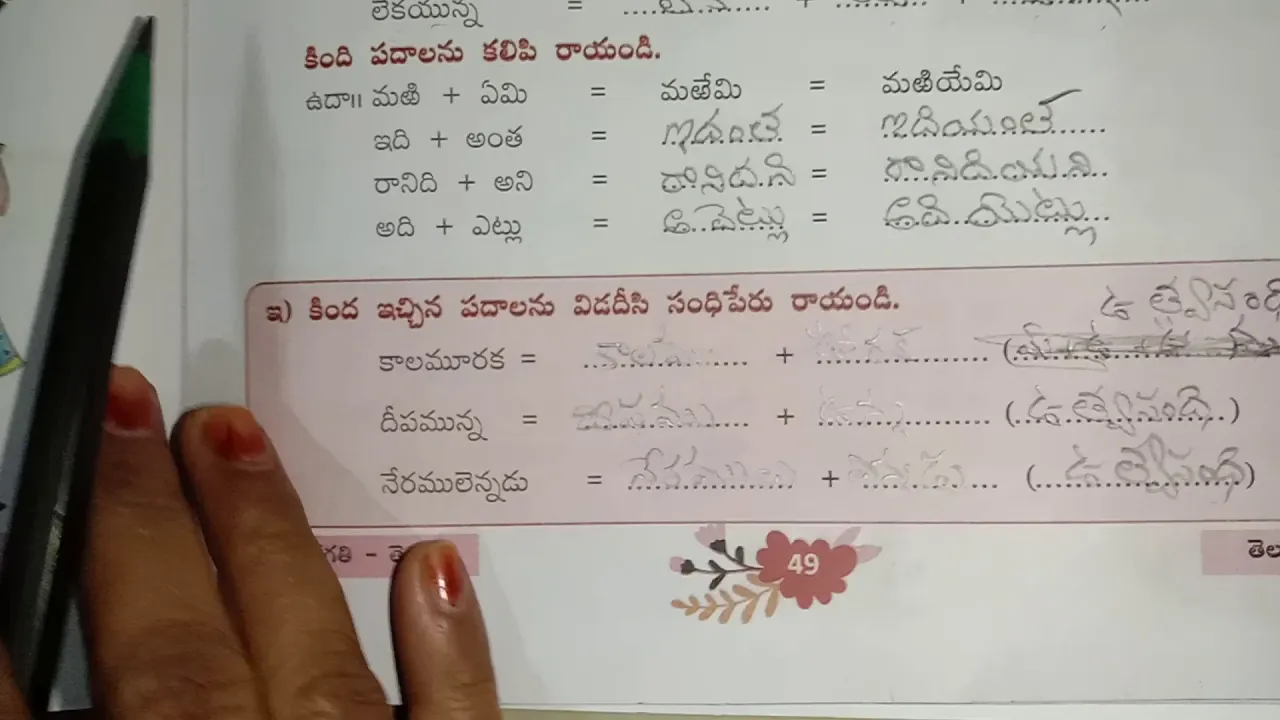 లేకయున్న = + +
కింది పదాలను కలిపి రాయండి.
ఉదా॥ మఱి + ఏమి = మఱేమి = మఱియేమి
ఇది + అంత = ఇదంత = ఇదియంత
రానిది + అని = రానిదని = రానిదియని
అది + ఎట్లు = = అదియెట్లు
ఇ) కింద ఇచ్చిన పదాలను విడదీసి సంధిపేరు రాయండి. ఉత్వసంధి
కాలమూరక = కాలము + (
దీపమున్న = దీపము + ఉన్న (ఉత్వసంధి)
నేరములెన్నడు = నేరములు + (ఉత్వసంధి)
గతి - తె
49
తెల